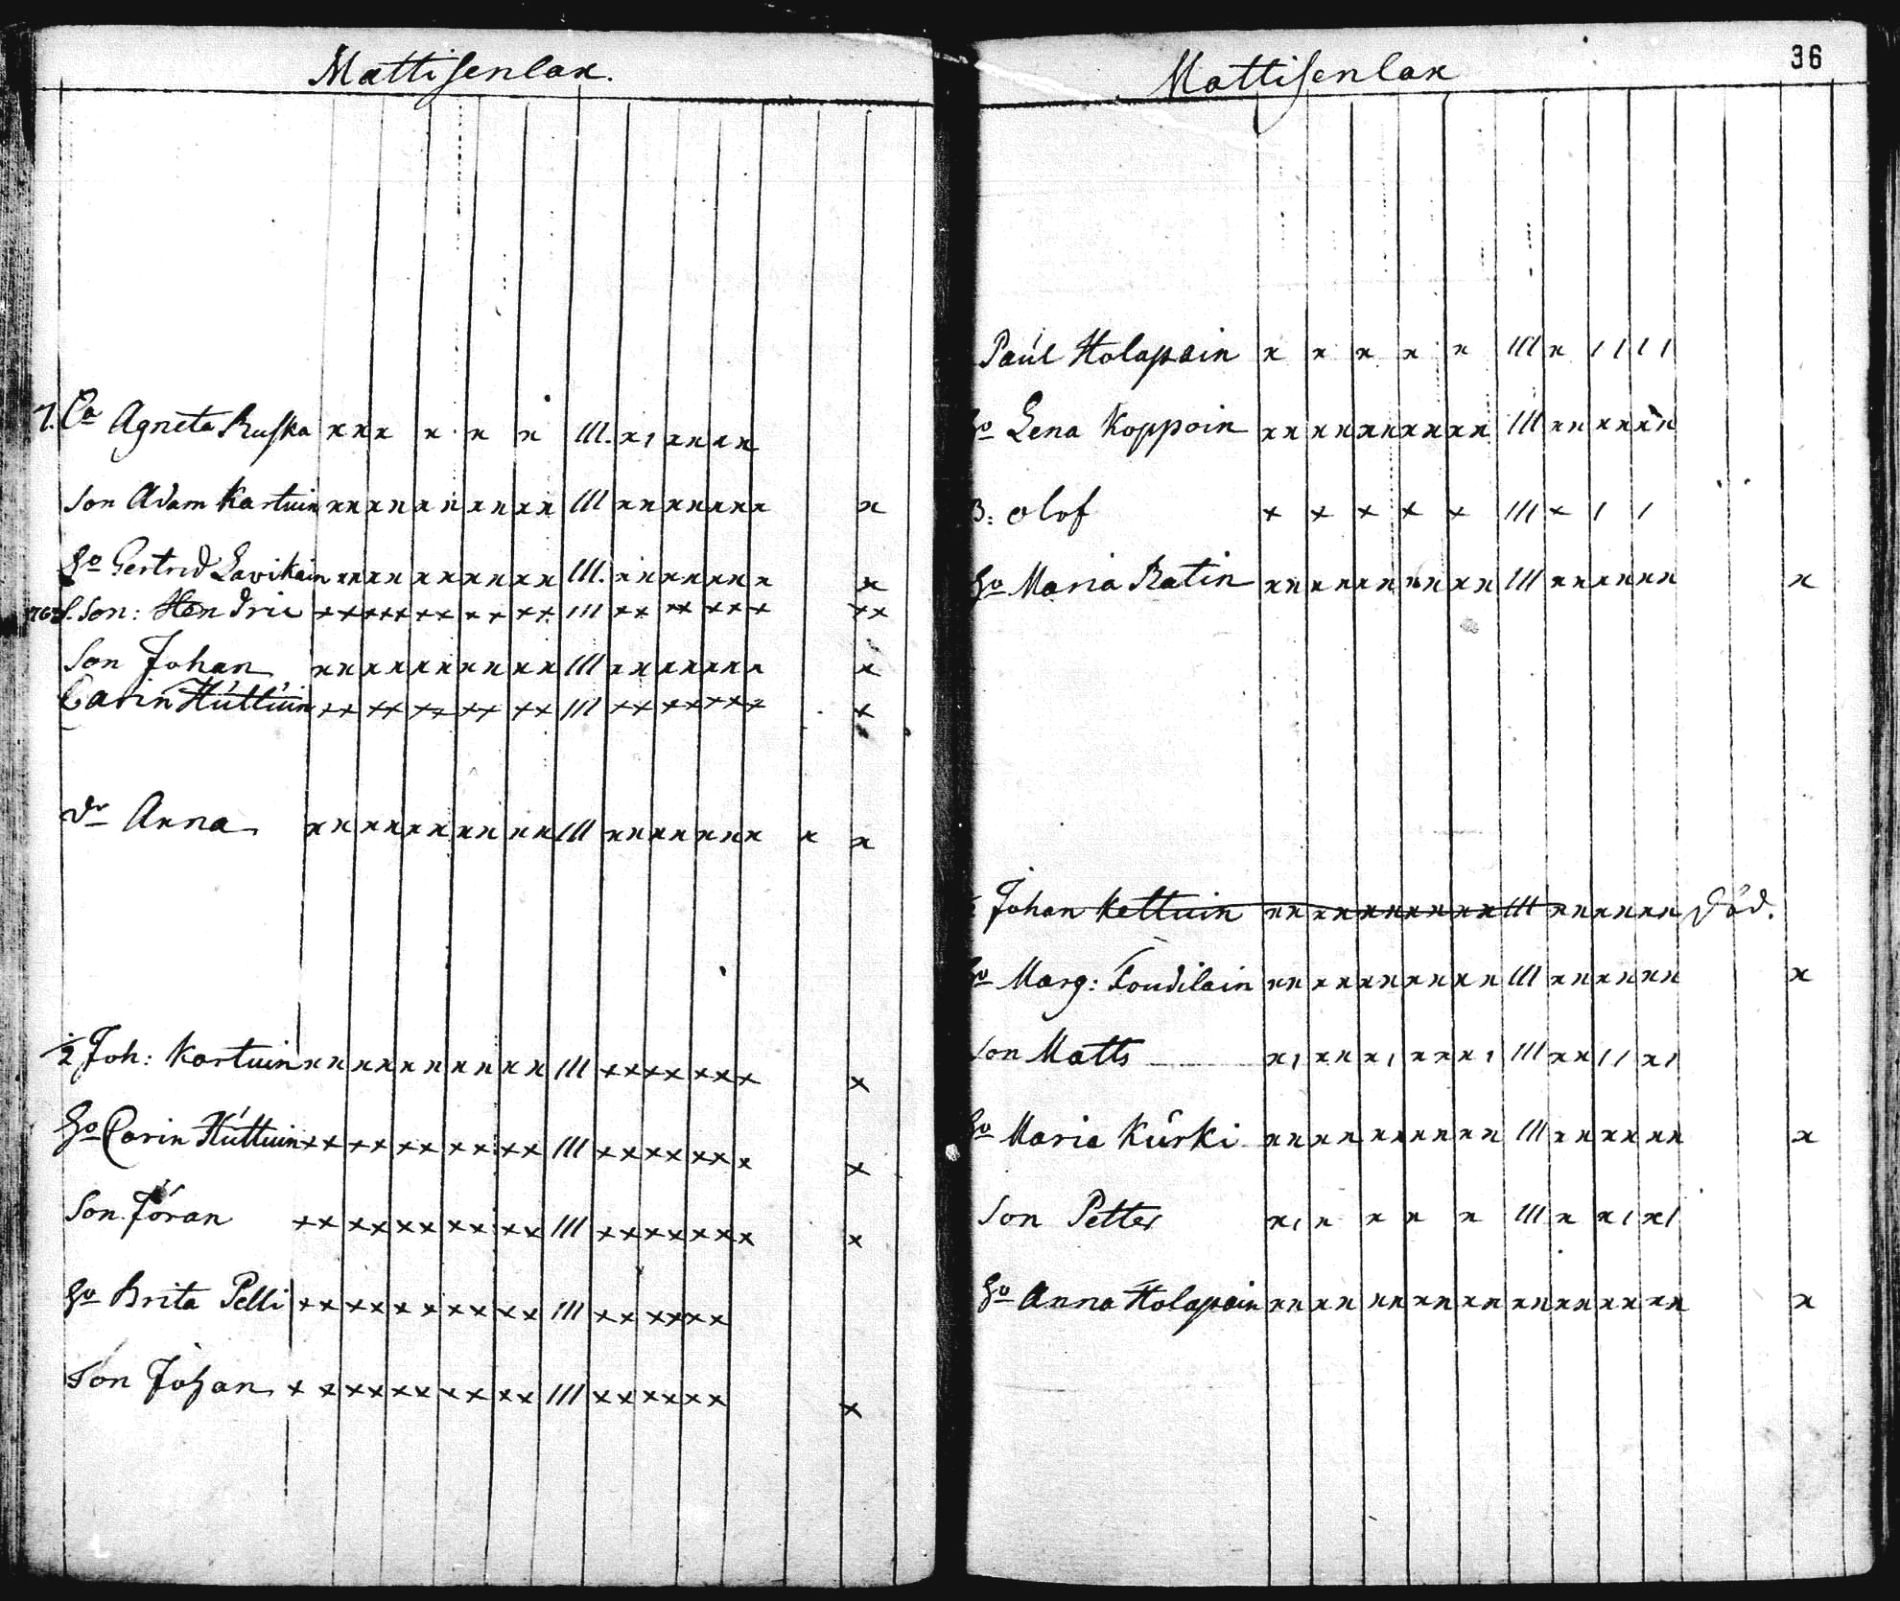 Mattisenlax.
1. Ea Agneta Ruska x x x x x x III. x 1 x x x x
Son Adam Kartuin x x x x x x x x x x III x x x x x x x x
Ho Gertrud Lavikain x x x x x x x x x x III. x x x x x x x x
S. Son: Hendric x x x x x x x x x x III x x x x x x x x x
Son Johan x x x x x x x x x x III x x x x x x x x
Carin Húttúin x x x x x x x x x x III x x x x x x x x
Dr Anna x x x x x x x x x x III x x x x x x x x x
1/2 Joh: Kartuin x x x x x x x x x x III x x x x x x x x
Ho Carin Húttuin x x x x x x x x x x III x x x x x x x x
Son Jöran x x x x x x x x x x III x x x x x x x x
Ho Brita Pelli x x x x x x x x x x III x x x x x x
Son Johan x x x x x x x x x x III x x x x x x x
Mattisenlax
36
Paúl Holapain x x x x x III x 1 1 1 1
Ho Lena Koppoin x x x x x x x x x x III x x x x x x
B: Olof x x x x x III x 1 1
Ho Maria Ratin x x x x x x x x x x III x x x x x x x
Johan Kettuin x x x x x x x x x x III x x x x x x Död.
Ho Marg: Toudilain x x x x x x x x x x III x x x x x x x
Son Matts x 1 x x x 1 x x x 1 III x x 1 1 x 1
Ho Maria Kúrki x x x x x x x x x x III x x x x x x x
Son Petter x 1 x x x x III x x 1 x 1
Ho Anna Holapain x x x x x x x x x x x x x x x x x x x